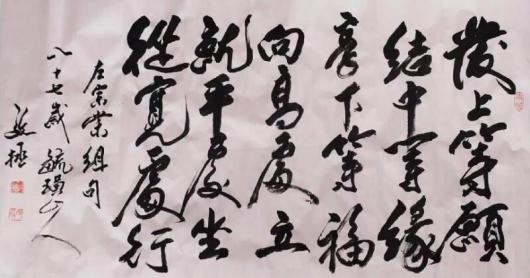 發上等願
結中等緣
享下等福
向高處立
就平處坐
從寬處行
左宗棠組句
八十七歲毓山人